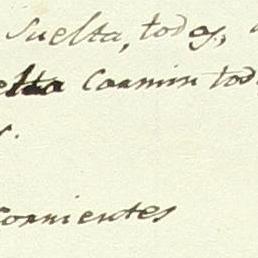 suelta, todos,
elta Carmin tod
s.
Corrientes